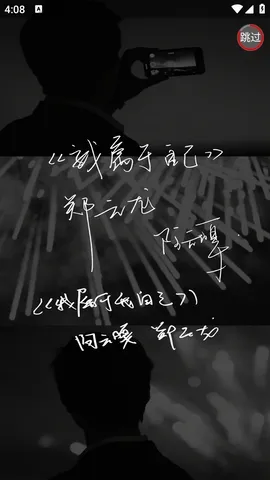 4:08
跳过
《我属于自己》
郑云龙
阿云嘎
《我属于我自己》
阿云嘎 郑云龙